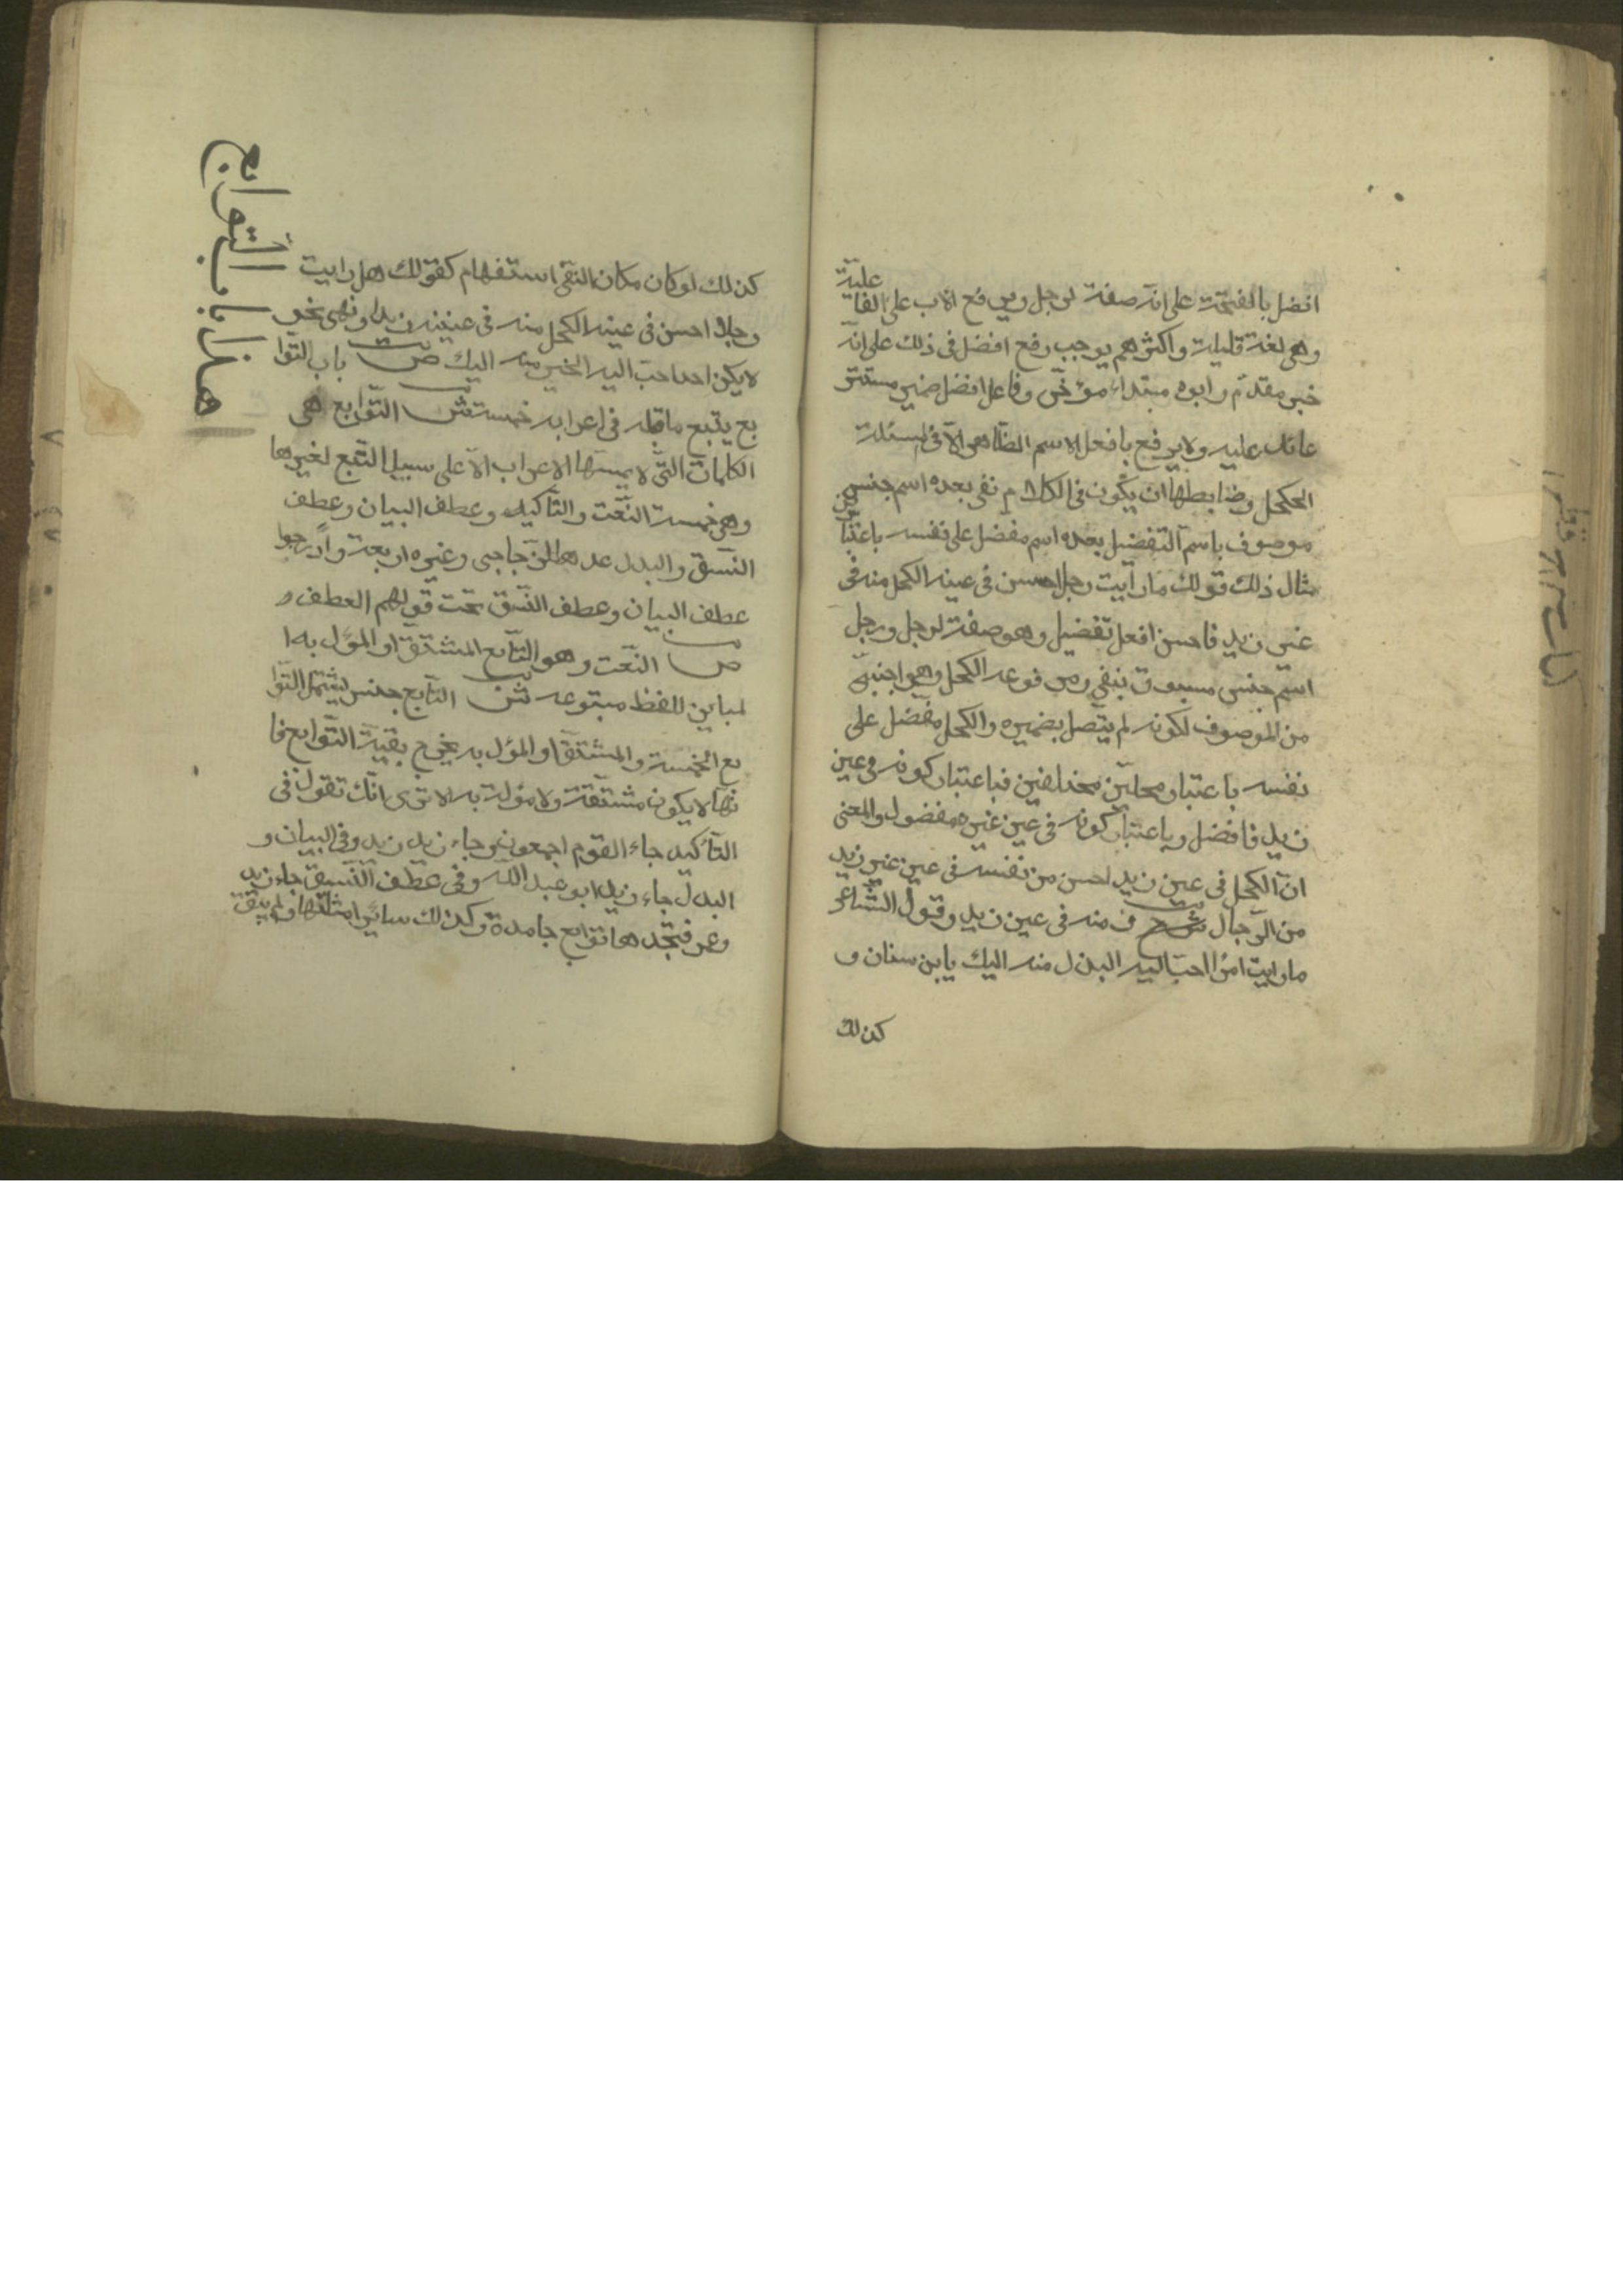 افضل بالفتحة على انه صفة لرجل ويرفع الاب على الفا
علية
وهى لغة قليلة واكثرهم يوجب رفع افضل فى ذلك على انه
خبر مقدم وابوه مبتداء مؤخر وفاعل افضل ضمير مستتر
عائد عليه ولا يرفع بافعل الاسم الظاهر الا فى مسئلة
الكحل وضابطها ان يكون فى الكلام نفى بعده اسم جنس
موصوف باسم التفضيل بعده اسم مفضل على نفسه باعتبا
رين
مثال ذلك قولك ما رايت رجلا احسن فى عينه الكحل منه فى
عين زيد فاحسن افعل تفضيل وهو صفة لرجل ورجل
اسم جنس مسبوق بنفي ومرفوعه الكحل وهو اجنبى
من الموصوف لكونه لم يتصل بضميره والكحل مفضل على
نفسه باعتبار محلين مختلفين فباعتبار كونه فى عين
زيد فافضل وباعتبار كونه فى عين غيره مفضول والمعنى
ان الكحل فى عين زيد احسن من نفسه فى عين غير زيد
من الرجال منه فى عين زيد وقول الشاعر
ما رايت امرا احب اليه البذل منه اليك يابن سنان و
كذلك
هذا باب التوابع
كذلك لو كان مكان النفى استفهام كقولك هل رايت
رجلا احسن فى عينه الكحل منه فى عين زيد او نهى نحو
لا يكن احد احب اليه الخير منه اليك ص باب التوا
بع يتبع ما قبله فى اعرابه خمسة ش التوابع هى
الكلمات التى لا يمسها الاعراب الا على سبيل التبع لغيرها
وهى خمسة النعت والتاكيد وعطف البيان وعطف
النسق والبدل عدها الزجاجى وغيره اربعة وادرجوا
عطف البيان وعطف النسق تحت قولهم العطف و
ص النعت وهو التابع المشتق او المؤل به ا
لمباين للفظ متبوعه ش التابع جنس يشتمل التوا
بع الخمسة والمشتق او المؤل به يخرج بقية التوابع فا
نها لا يكون مشتقة ولا مؤلة به الا ترى انك تقول فى
التاكيد جاء القوم اجمعون وجاء زيد زيد وفى البيان و
البدل جاء زيد ابو عبد الله وفى عطف النسق جاء زيد
وعمر فتجدها توابع جامدة وكذلك سائر امثلتها ولم يبق